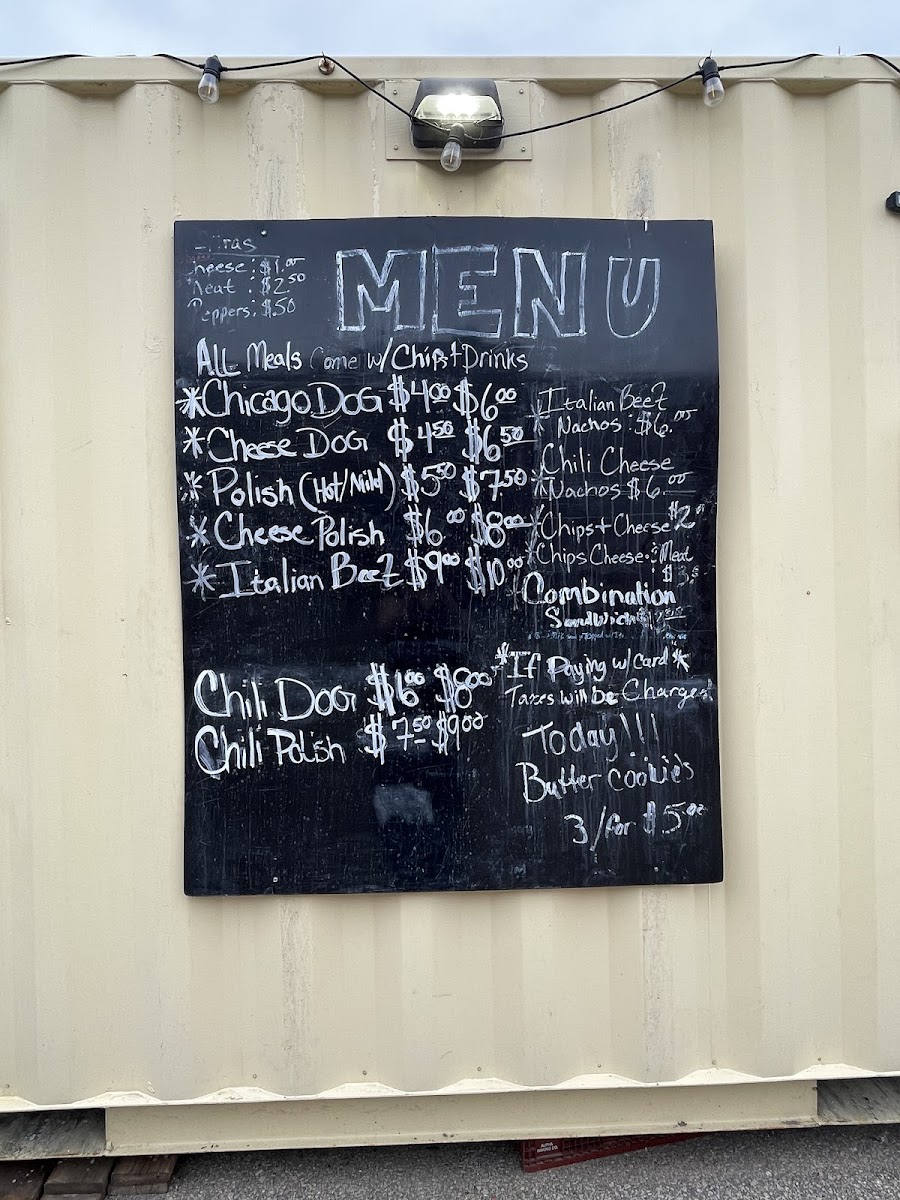 Extras
Cheese: $1.00
Meat: $2.50
Peppers: $.50
MENU
ALL Meals Come w/ Chips + Drinks
*Chicago DOG $4.00 $6.00
*Cheese DOG $4.50 $6.50
*Polish (Hot/Mild) $5.50 $7.50
*Cheese Polish $6.00 $8.00
*Italian Beef $9.00 $10.00
Chili DOG $6.00 $8.00
Chili Polish $7.50 $9.00
*Italian Beef
Nachos: $6.00
*Chili Cheese
Nachos $6.00
*Chips + Cheese $2
*Chips Cheese Meat
Combination
Sandwich
*If Paying w/ Card*
Taxes will be Charged
Today!!!
Butter cookies
3/for $5.00